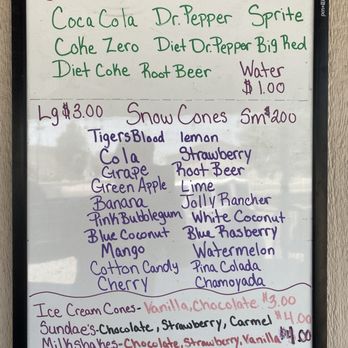 Coca Cola Dr. Pepper Sprite
Coke Zero Diet Dr. Pepper Big Red
Diet Coke Root Beer Water
$1.00
Lg $3.00 Snow Cones Sm $2.00
Tigers Blood lemon
Cola Strawberry
Grape Root Beer
Green Apple Lime
Banana Jolly Rancher
Pink Bubblegum White Coconut
Blue Coconut Blue Rasberry
Mango Watermelon
Cotton Candy Pina Colada
Cherry Chamoyada
Ice Cream Cones - Vanilla, Chocolate $3.00
Sundae's - Chocolate, Strawberry, Carmel $4.00
Milkshakes - Chocolate, Strawberry, Vanilla $4.00